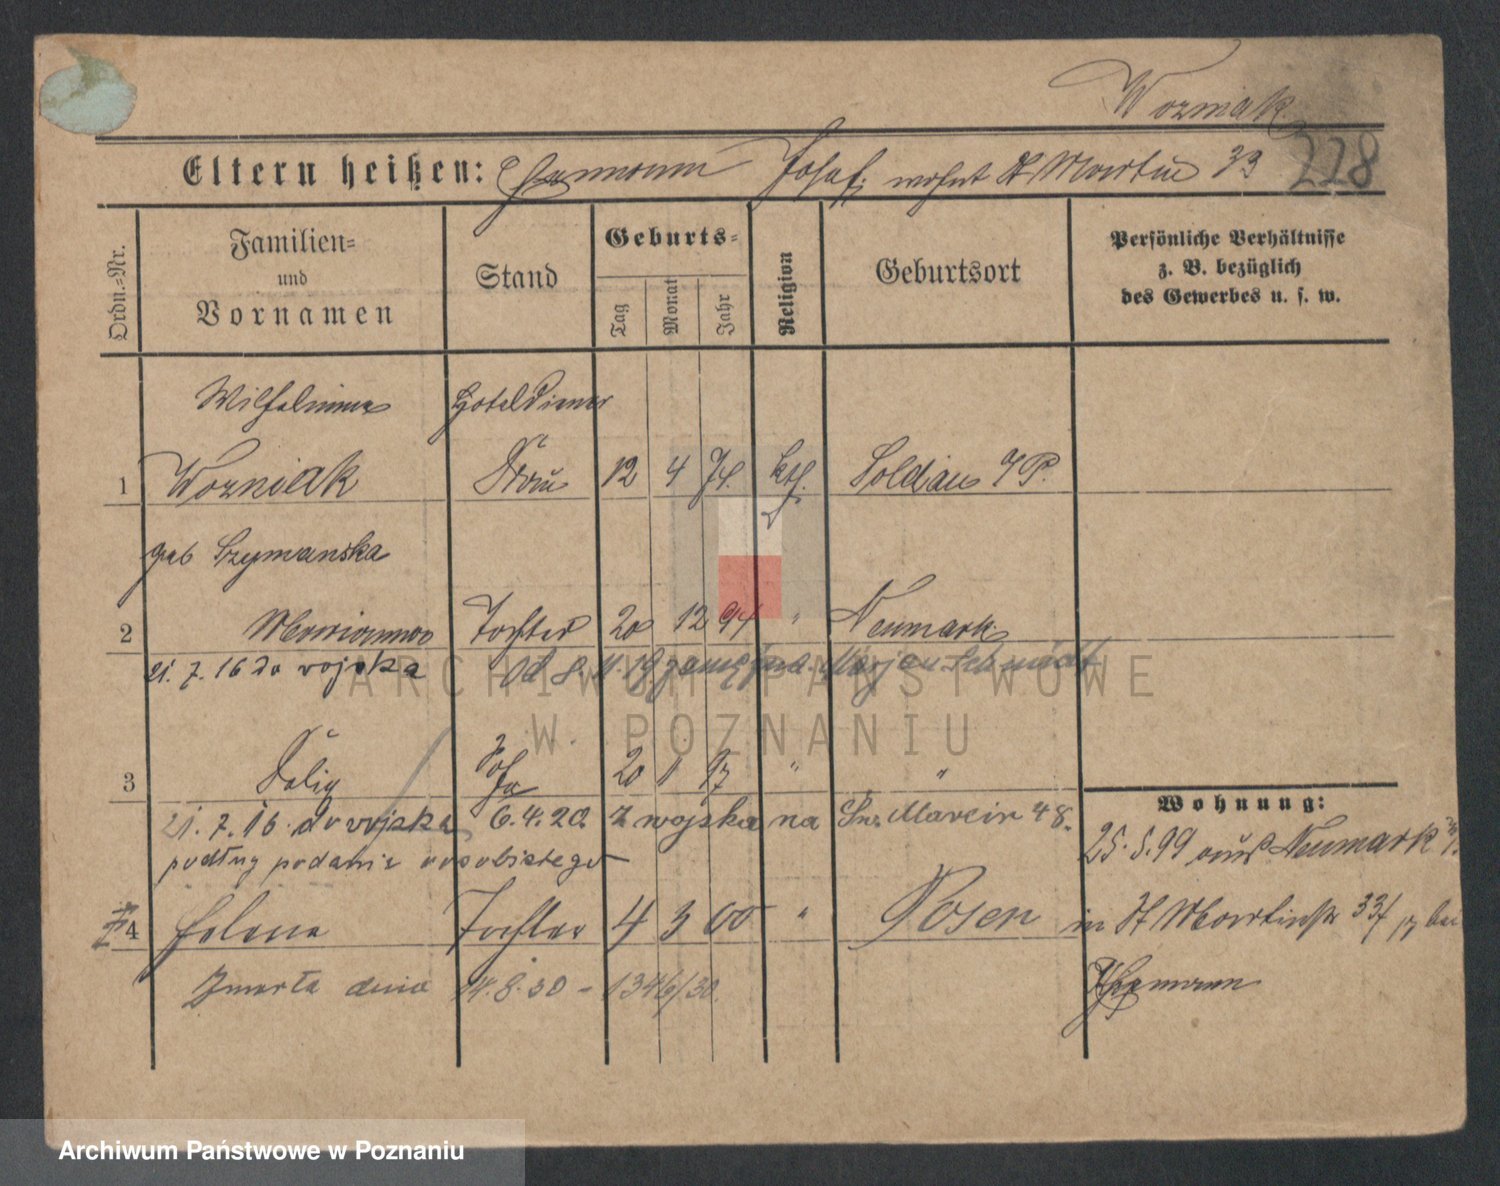 Wozniak
Eltern heißen: Josef, wohnt St Martin 33
228
Ordn.=Nr.
Familien=
und
Vornamen
Stand
Geburts=
Tag
Monat
Jahr
Religion
Geburtsort
Persönliche Verhältnisse
z. B. bezüglich
des Gewerbes u. s. w.
Wilhelmine Hoteldiener
1 Wozniak Frau 12 4 74. kth. Soldau
geb Szymanska
2 Marianna Tochter 20 12 94 " Neumark
21. 7. 16 do wojska Od 8. 11. 19 zamężna Marjan Schmidt
3 Felix Sohn 20 1 97 " "
21. 7. 16. do wojska 6. 4. 20. z wojska na Św. Marcin 48.
podług podania osobistego
Wohnung:
25. 5. 99 aus Neumark
4 Helene Tochter 4 3 00 " Posen
in St Martinstr 33 bei
Zmarła dnia 14. 8. 30 - 1346/30.
ARCHIWUM PAŃSTWOWE
W POZNANIU
Archiwum Państwowe w Poznaniu